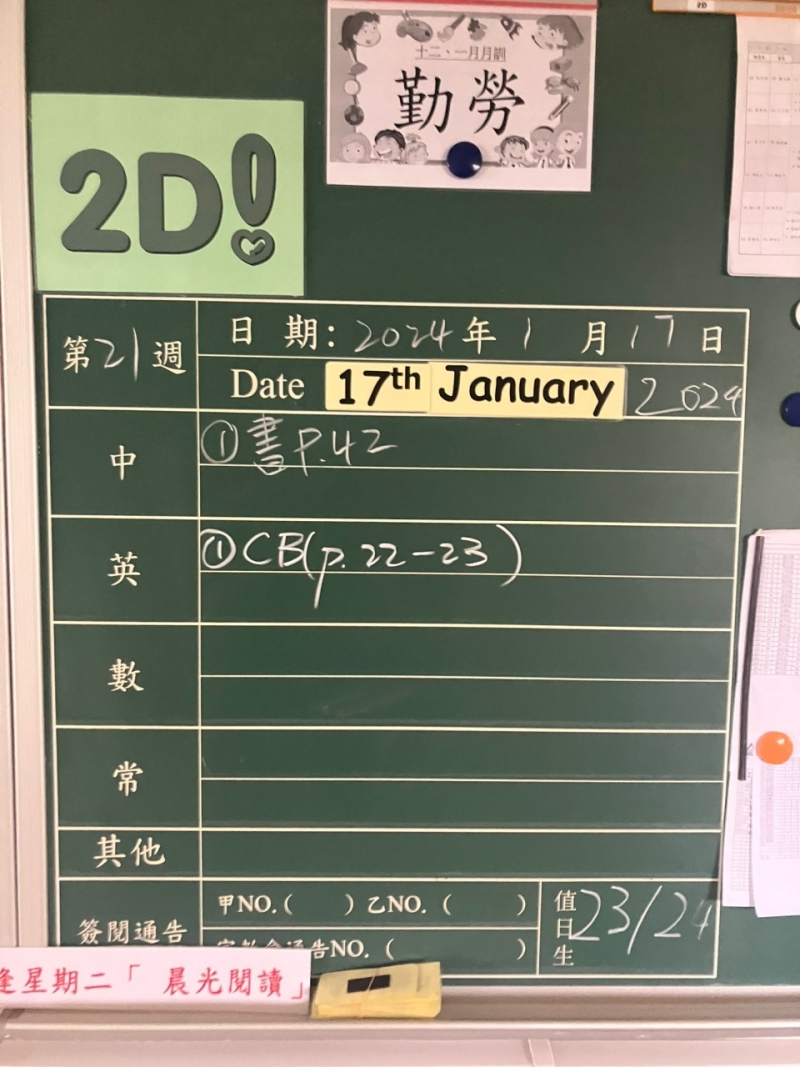 2D
十二、一月月訓
勤勞
2D!
第21週
日期: 2024年1月17日
Date 17th January 2024
中
①書P.42
英
①CB(p.22-23)
數
常
其他
簽閱通告
甲NO.( ) 乙NO.( )
NO.( )
值日生 23/24
逢星期二「晨光閱讀」